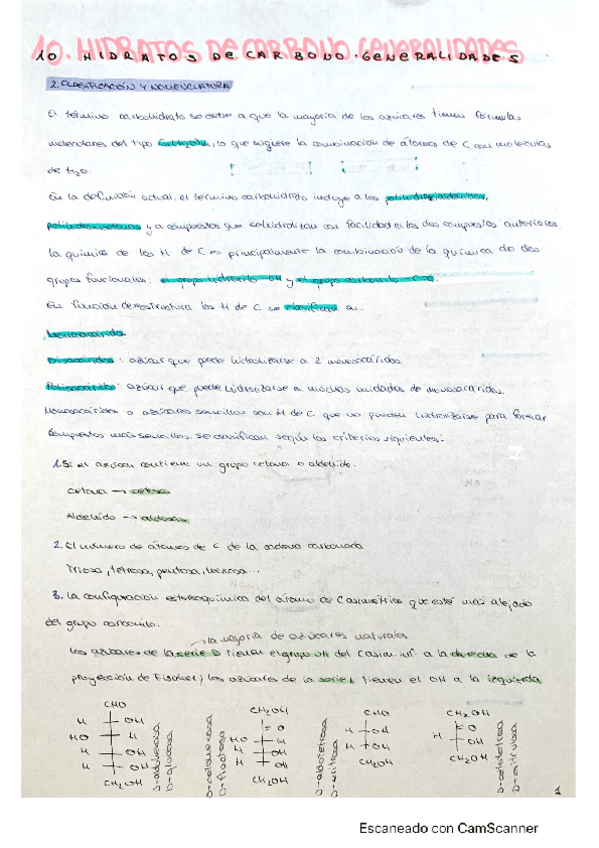 10. HIDRATOS DE CARBONO. GENERALIDADES
2. CLASIFICACIÓN Y NOMENCLATURA
El término carbohidrato se debe a que la mayoría de los azúcares tienen fórmulas
moleculares del tipo, lo que sugiere la combinación de átomos de C con moléculas
de H2O.
En la definición actual, el término carbohidrato incluye a los polihidroxialdehídos,
polihidroxicetonas y a compuestos que se hidrolizan con facilidad a los dos compuestos anteriores.
La química de los H de C es principalmente la combinación de la química de dos
grupos funcionales: el grupo hidroxilo -OH y el grupo carbonilo -C=O.
En función de su estructura los H de C se clasifican en:
Monosacárido
Disacáridos: azúcar que puede hidrolizarse a 2 monosacáridos.
Polisacárido: azúcar que puede hidrolizarse a muchas unidades de monosacáridos.
Monosacáridos o azúcares sencillos son H de C que no pueden hidrolizarse para formar
compuestos más sencillos. Se clasifican según los criterios siguientes:
1. Si el azúcar contiene un grupo cetona o aldehído.
Cetona → cetosa
Aldehído → aldosa
2. El número de átomos de C de la cadena carbonada
Triosa, tetrosa, pentosa, hexosa...
3. La configuración estereoquímica del átomo de C asimétrico que esté más alejado
del grupo carbonilo.
→ la mayoría de azúcares naturales
Los azúcares de la serie D tienen el grupo OH del C asim. inf. a la derecha de la
proyección de Fischer; los azúcares de la serie L tienen el OH a la izquierda.
CHO
H OH
HO H
H OH
H OH
CH2OH
D-aldohexosa
D-glucosa
CH2OH
=O
HO H
H OH
H OH
CH2OH
D-cetohexosa
D-fructosa
CHO
H OH
H OH
CH2OH
D-aldotetrosa
D-eritrosa
CH2OH
=O
H OH
CH2OH
D-cetotetrosa
D-eritrulosa
1
Escaneado con CamScanner